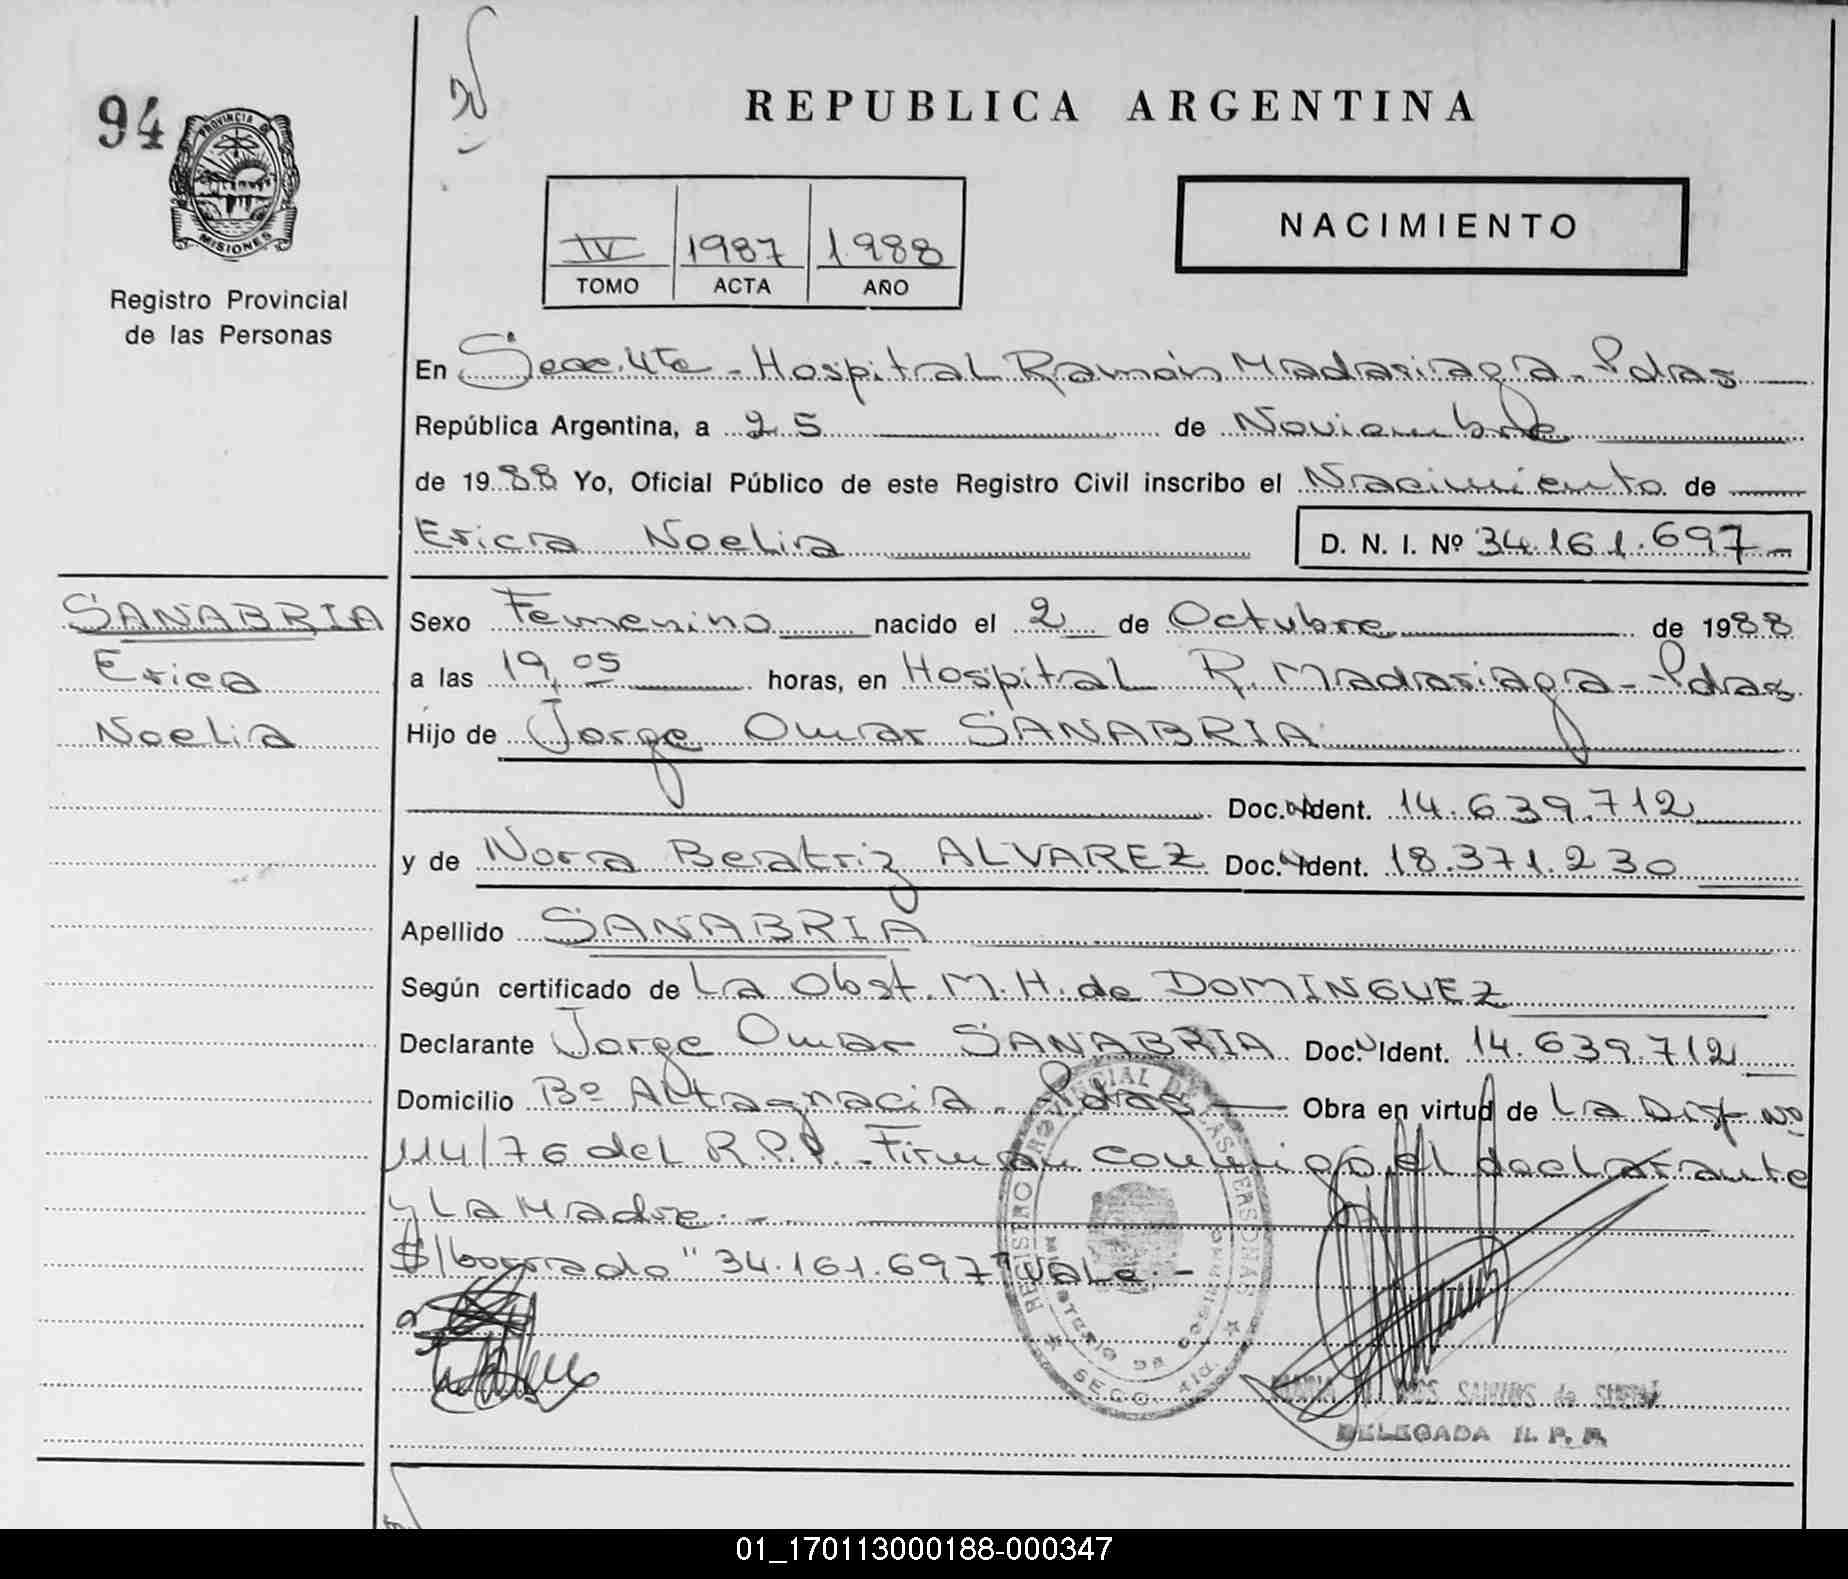 94
PROVINCIA DE
MISIONES
Registro Provincial
de las Personas
REPUBLICA ARGENTINA
IV 1987 1.988
TOMO ACTA AÑO
NACIMIENTO
En Secc. 4te - Hospital Ramón Madariaga - Pdas
República Argentina, a 25 de Noviembre
de 1988 Yo, Oficial Público de este Registro Civil inscribo el Nacimiento de
Erica Noelia D. N. I. Nº 34.161.697-
SANABRIA
Erica
Noelia
Sexo Femenino nacido el 2 de Octubre de 1988
a las 19,05 horas, en Hospital R. Madariaga - Pdas
Hijo de Jorge Omar SANABRIA
Doc. Ident. 14.639.712
y de Nora Beatriz ALVAREZ Doc. Ident. 18.371.230
Apellido SANABRIA
Según certificado de La Obst. M. H. de DOMINGUEZ
Declarante Jorge Omar SANABRIA Doc. Ident. 14.639.712
Domicilio Bº Altagracia - Pdas Obra en virtud de La Disp Nº
114/76 del R.P.P. - Firman conmigo, el declarante
y La Madre. -
S/borrado "34.161.697" Vale. -
REGISTRO PROVINCIAL DE LAS PERSONAS
MINISTERIO DE GOBIERNO
SANTOS de
DELEGADA R. P. P.
01_170113000188-000347